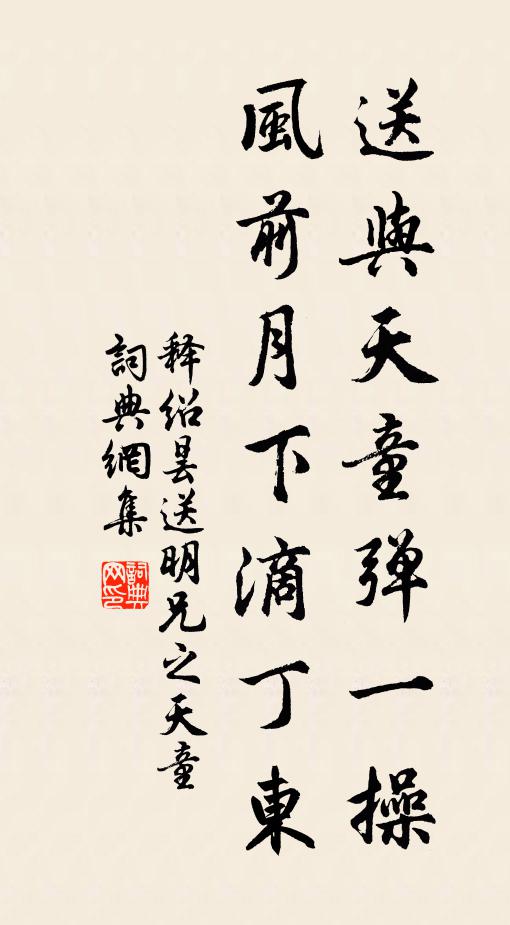 送與天童弹一操
風前月下滴丁東
释绍曇送明兄之天童
詞典網集
詞典
网印